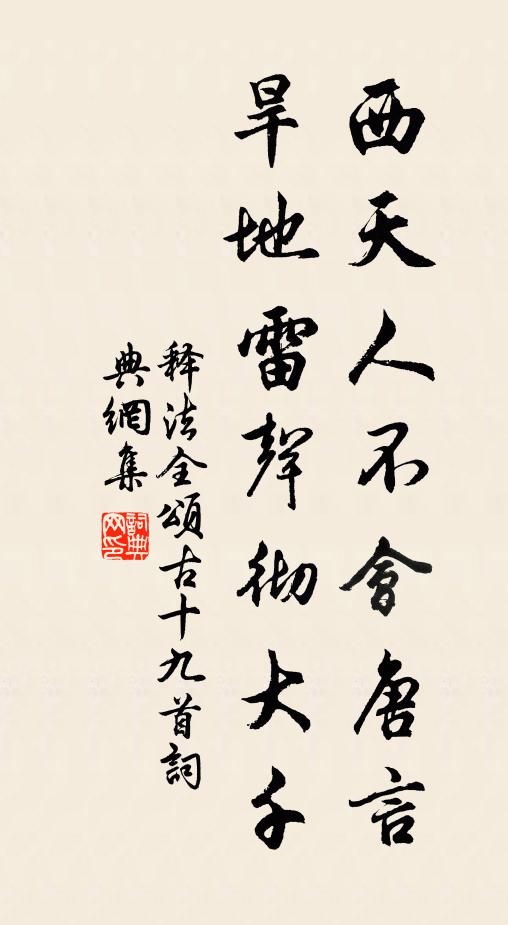 西天人不會唐言
旱地雷聲徹大千
釋法全頌古十九首詞
典網集
詞典
网印